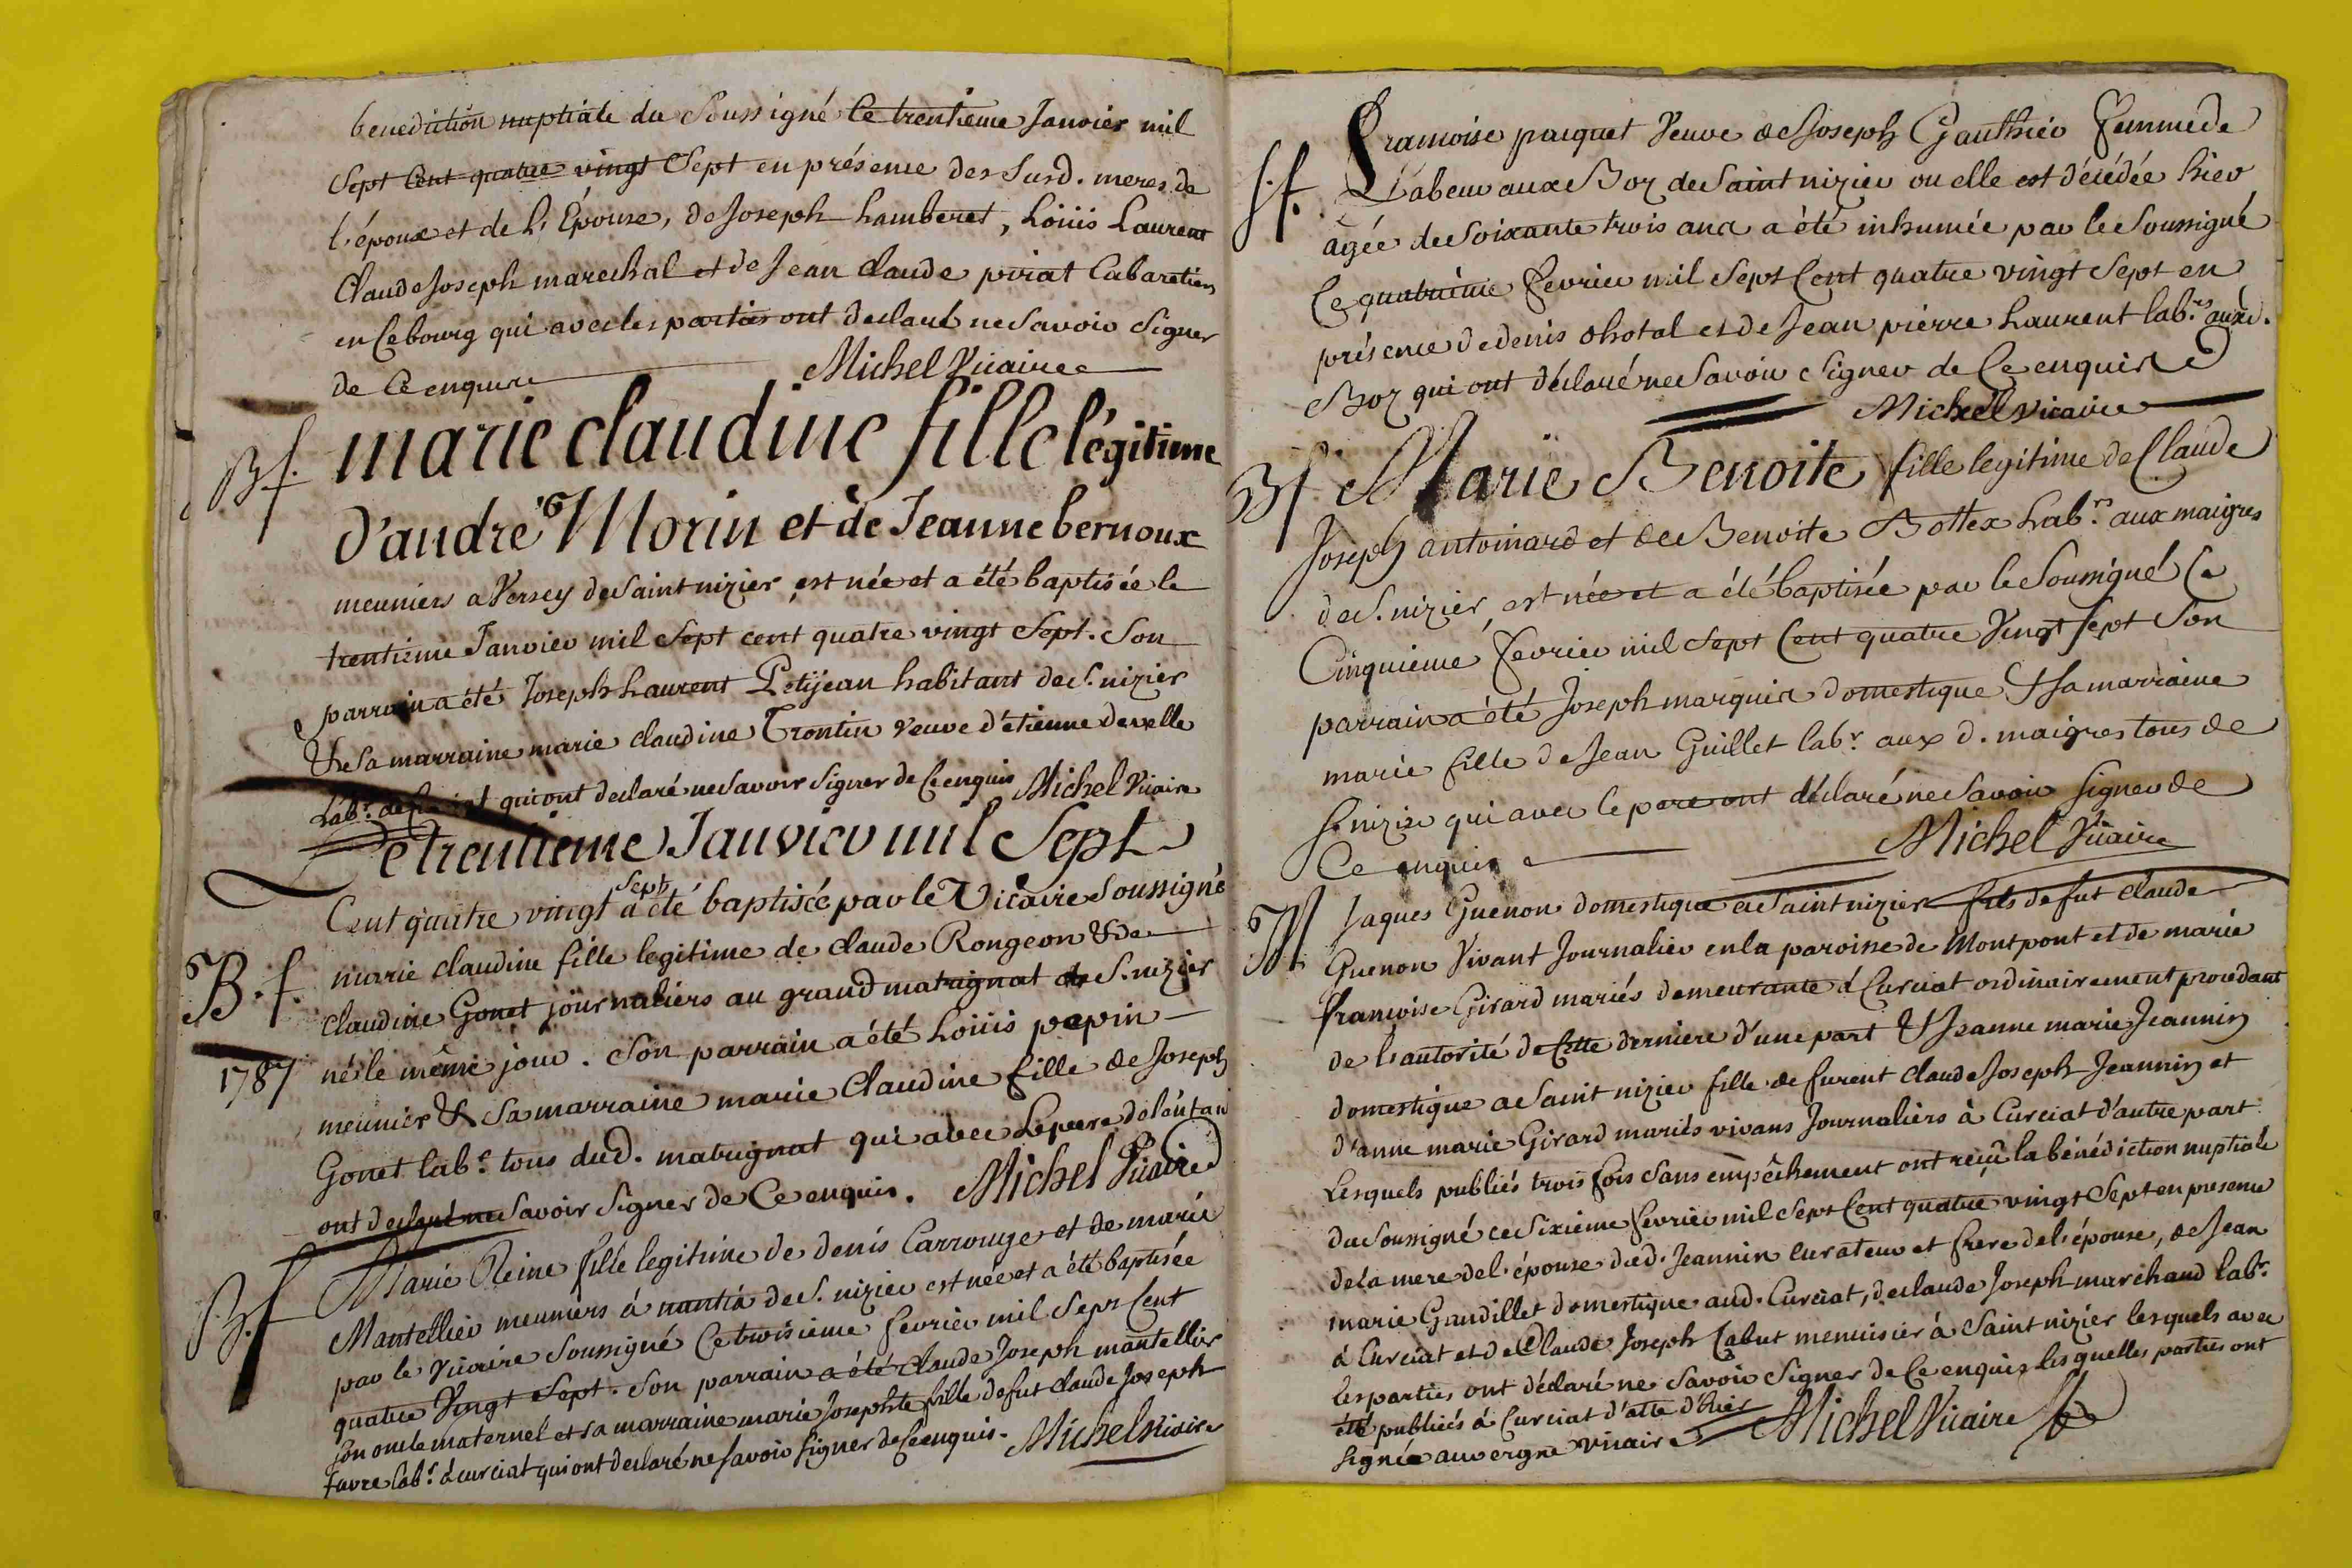 benediction nuptiale du Soussigné le trentieme Janvier mil
Sept Cent quatre vingt Sept en présence des Susd. meres de
l'époux et de l'Épouse, de Joseph hamberet, Loüis Laurent
Claude Joseph marechal et de Jean claude poiat Cabaretiers
en Cebourg qui avec les parties ont declaré ne Savoir Signer
de Ce enquis Michel Vicaire
Bf. marie claudine fille légitime
d'andré Morin et de Jeanne bernoux
meuniers a Versey de Saint nizier est née et a été baptisée le
trentieme Janvier mil Sept cent quatre vingt Sept. Son
parrain a été Joseph Laurent Petijean habitant de S. nizier
& Sa marraine marie claudine Trontin veuve d'étienne develle
Labr. qui ont declaré ne Savoir Signer de Ce enquis Michel Vicaire
Le trentieme Janvier mil Sept
Sept
Cent quatre vingt a été baptisée par le Vicaire Soussigné
B.f. marie claudine fille legitime de claude Rongeon & de
claudine Gonet journaliers au grand matrignat de S. nizier
1787 né le même jour. Son parrain a été Loüis pepin
meunier & Sa marraine marie Claudine fille de Joseph
Gonet labr. tous dud. matrignat qui avec Le pere de l'enfan
ont declaré ne Savoir Signer de Ce enquis. Michel Vicaire
B.f Marie Reine fille legitime de denis Carrouge et de marie
Mantellier meuniers à nantia de S. nizier est née et a été baptisée
par le Vicaire Soussigné Ce troisieme fevrier mil Sept Cent
quatre Vingt Sept. Son parrain a été claude Joseph mantellier
Son oncle maternel et Sa marraine marie Josephte fille de fut claude Joseph
favre labr. à curciat qui ont declaré ne Savoir Signer de Ce enquis. Michel Vicaire
S.f. Francoise paquet Veuve de Joseph Gauthier Femme de
Labeur aux Boz de Saint nizier ou elle est décédée hier
âgée de Soixante trois ans a été inhumée par le Soussigné
Ce quatrième fevrier mil Sept Cent quatre vingt Sept en
présence de denis chotal et de Jean pierre Laurent labrs. auxd.
Boz qui ont déclaré ne Savoir Signer de Ce enquis
Michel Vicaire
Bf Marie Benoite fille legitime de Claude
Joseph antoinard et de Benoite Bottex Labrs. aux maigres
de S. nizier, est née et a été baptisée par le Soussigné Ce
Cinquieme fevrier mil Sept Cent quatre Vingt Sept Son
parrain a été Joseph marquis domestique & Sa marraine
marie fille de Jean Guillet labr. aux d. maigres tous de
S. nizier qui avec le pere ont déclaré ne Savoir Signer de
Ce enquis Michel Vicaire
M Jaques Guenon domestique a Saint nizier fils de fut claude
Guenon Vivant Journalier en la paroisse de Montpont et de marie
françoise Girard mariés demeurante à Curciat ordinairement procedant
de l'autorité de Cette derniere d'une part & Jeanne marie Jeannin
domestique a Saint nizier fille de furent claude Joseph Jeannin et
d'anne marie Girard mariés vivans Journaliers à Curciat d'autre part
Lesquels publiés trois fois Sans empêchement ont reçu la bénédiction nuptiale
du Soussigné ce Sixieme fevrier mil Sept Cent quatre vingt Sept en presence
de la mere de l'épouse dud. Jeannin curateur et frere de l'épouse, de Jean
marie Gandillet domestique aud. Curciat, de claude Joseph marchand labr.
à Curciat et de Claude Joseph Cabut menuisier à Saint nizier lesquels avec
les parties ont déclaré ne Savoir Signer de Ce enquis lesquelles parties ont
été publiées à Curciat d'atte d'hier
Signée auvergne vicaire Michel Vicaire